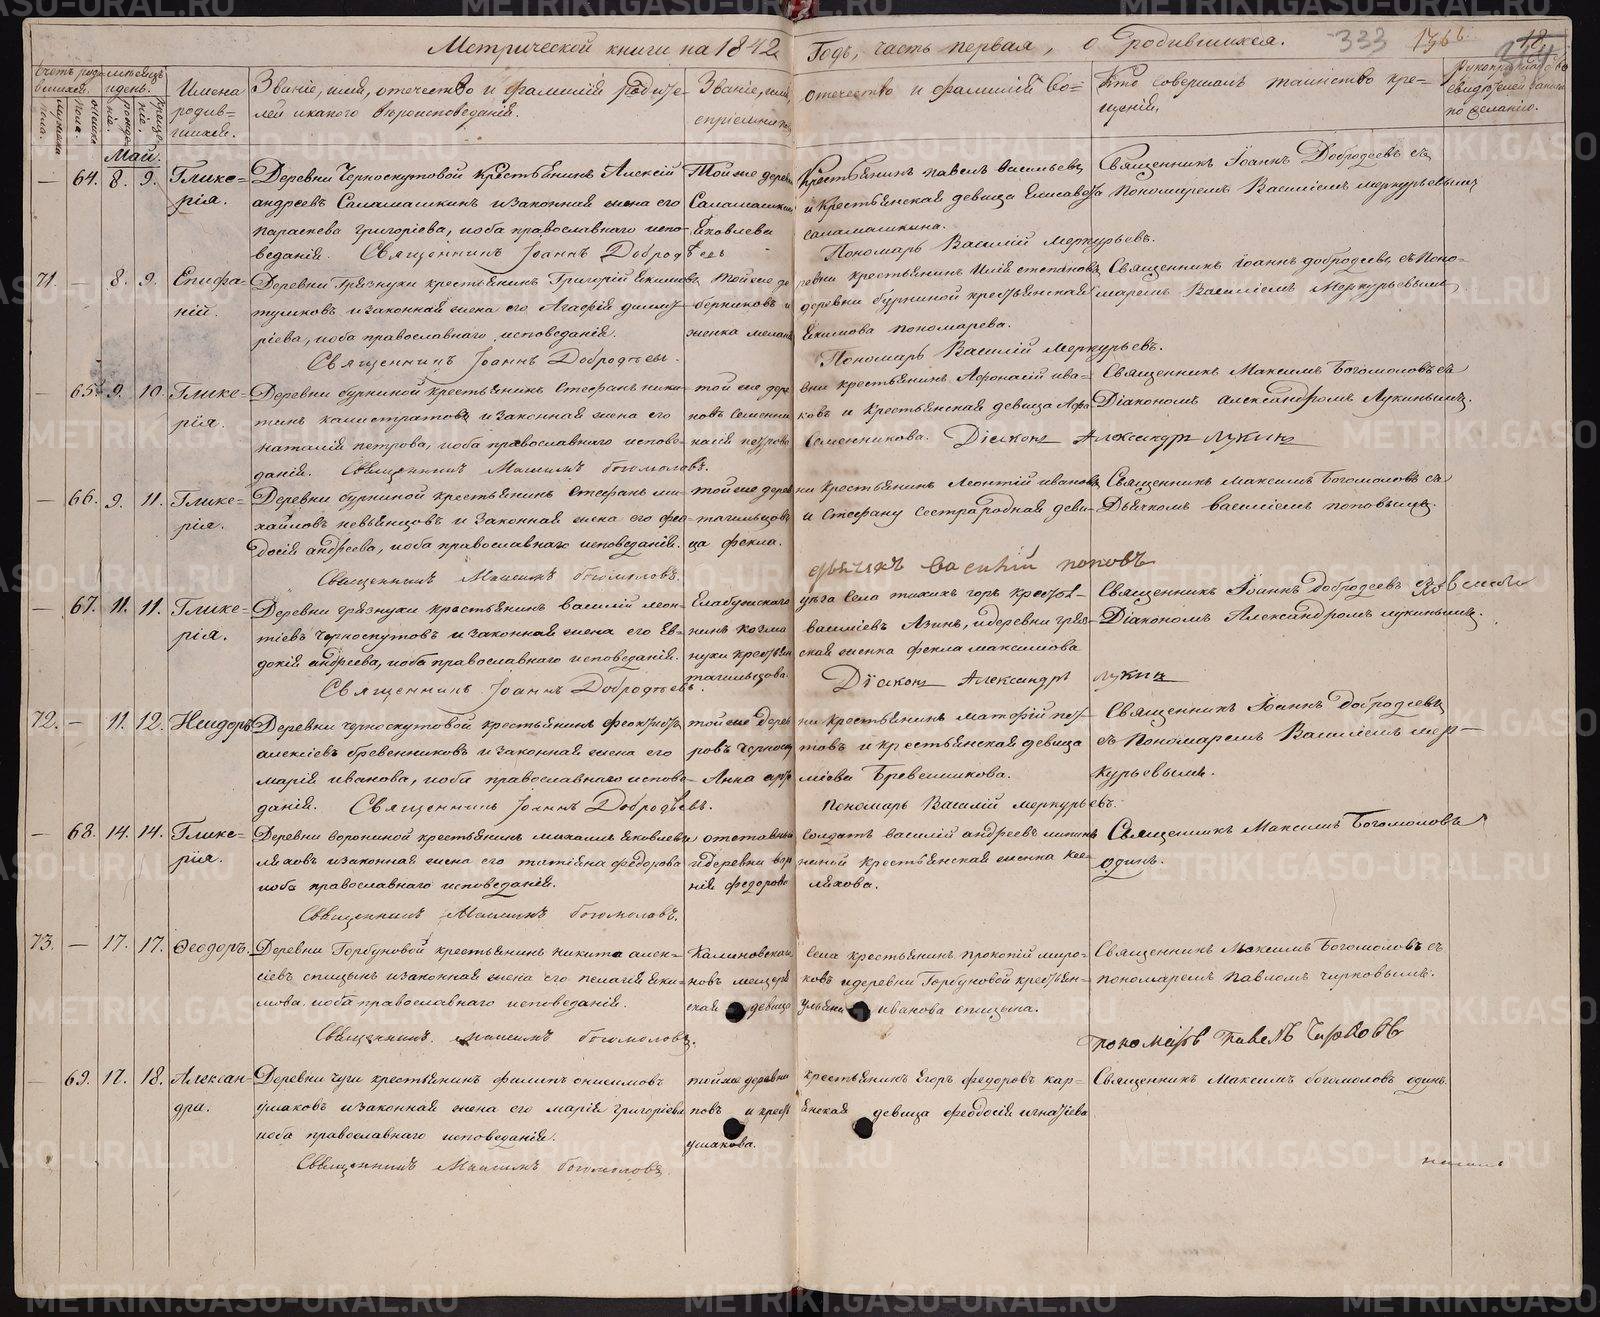 Метрической книги на 1842 Годъ, часть первая, о Родившихся. 333
Счетъ родившихся.
мужеска пола.
женска пола.
Мѣсяцъ и день.
рожденіе.
крещеніе.
Имена родившихся.
Званіе, имя, отечество и фамилія родителей и какого вѣроисповеданія.
Званіе, имя, отечество и фамилія воспріемниковъ
Кто совершалъ таинство крещенія.
по желанію.
Май.
— 64. 8. 9. Гликерія.
Деревни Черноскутовой крестьянинъ Алексій
андреевъ Саламашкинъ изаконная жена его
параскева григоріева, иоба православнаго испо-
веданія. Священникъ Іоаннъ Добродѣевъ
Той же деревни крестьянинъ павелъ васильевъ
Саламашкинъ и крестьянская девица Елисавета
Яковлева саламашкина.
Пономарь Василій меркурьевъ.
Священникъ Іоаннъ Добродеевъ съ
пономаремъ Василіемъ меркурьевымъ
71. — 8. 9. Епифаній.
Деревни Грязнухи крестьянинъ Григорій Екимовъ
тушковъ изаконная жена его Агафія димит-
ріева, иоба православнаго исповеданія.
Священникъ Іоаннъ Добродѣевъ.
Той же деревни крестьянинъ Илія степановъ
деревни бурниной крестьянская
женка Екимова пономарева.
Пономарь Василій меркурьевъ.
Священникъ Іоаннъ добродеевъ съ Поно-
маремъ Василіемъ Меркурьевымъ
— 65. 9. 10. Гликерія.
Деревни бурниной крестьянинъ Стефанъ ники-
тинъ калистратовъ изаконная жена его
наталія петрова, иоба православнаго испове-
данія. Священникъ Максимъ богомоловъ.
той же деревни крестьянинъ Афонасій ива-
новъ и крестьянская девица Афа-
насія петрова Семенникова. Діаконъ Александръ Лукинъ
Священникъ Максимъ Богомоловъ съ
Діакономъ александромъ Лукинымъ.
— 66. 9. 11. Гликерія.
Деревни бурниной крестьянинъ Стефанъ ми-
хайловъ невьянцовъ и законная жена его фео-
досія андреева, иоба православнаго исповеданія.
Священникъ Максимъ богомоловъ.
той же деревни крестьянинъ Леонтій ивановъ
тагильцовъ и Стефану сестра родная деви-
ца фекла.
дьячекъ василій поповъ
Священникъ максимъ Богомоловъ съ
Дьячкомъ василіемъ поповымъ.
— 67. 11. 11. Гликерія.
Деревни грязнухи крестьянинъ василій леон-
тіевъ черноскутовъ изаконная жена его Ев-
докія андреева, иоба православнаго исповеданія.
Священникъ Іоаннъ Добродѣевъ.
Елабужскаго уѣзда Села тихихъ горъ крестья-
нинъ козма василіевъ Азинъ, идеревни гряз-
нухи крестьянская женка фекла максимова
тагильцова. Діаконъ Александръ лукинъ
Священникъ Іоаннъ Добродеевъ
Діакономъ Александромъ лукинымъ.
72. — 11. 12. Исидоръ
Деревни черноскутовой крестьянинъ феоктистъ
алексіевъ бревенниковъ изаконная жена его
марія иванова, иоба православнаго испове-
данія. Священникъ Іоаннъ Добродѣевъ.
той же деревни крестьянинъ матфій пет-
ровъ черноскутовъ и крестьянская девица
Анна артеміева Бревенникова.
пономарь Василій меркурьевъ.
Священникъ Іоаннъ Добродеевъ
съ Пономаремъ Василіемъ мер-
курьевымъ.
— 68. 14. 14. Гликерія.
Деревни ворониной крестьянинъ михаилъ яковлевъ
ляховъ изаконная жена его татіяна федорова
иоба православнаго исповеданія.
Священникъ Максимъ богомоловъ.
отставной солдатъ василій андреевъ
идеревни ворониной крестьянская женка ксе-
нія федорова ляхова.
Священникъ Максимъ Богомоловъ
одинъ.
73. — 17. 17. Ѳеодоръ.
Деревни Горбуновой крестьянинъ никита алек-
сіевъ спицынъ изаконная жена его пелагея Еки-
мова. иоба православнаго исповеданія.
Священникъ максимъ богомоловъ.
Калиновскаго села крестьянинъ прокопій миро-
новъ идеревни Горбуновой крестьян-
ская девица ульяна иванова спицына.
Священникъ Максимъ Богомоловъ съ
пономаремъ павломъ чирковымъ.
пономарь павелъ Чирковъ
— 69. 17. 18. Александра.
Деревни чуги крестьянинъ филипъ онисимовъ
ушаковъ изаконная жена его марія григоріева
иоба православнаго исповеданія.
Священникъ Максимъ богомоловъ.
той же деревни крестьянинъ Егоръ федоровъ кар-
повъ и крестьянская девица феодосія игнатіева
ушакова.
Священникъ Максимъ богомоловъ одинъ.
METRIKI.GASO-URAL.RU